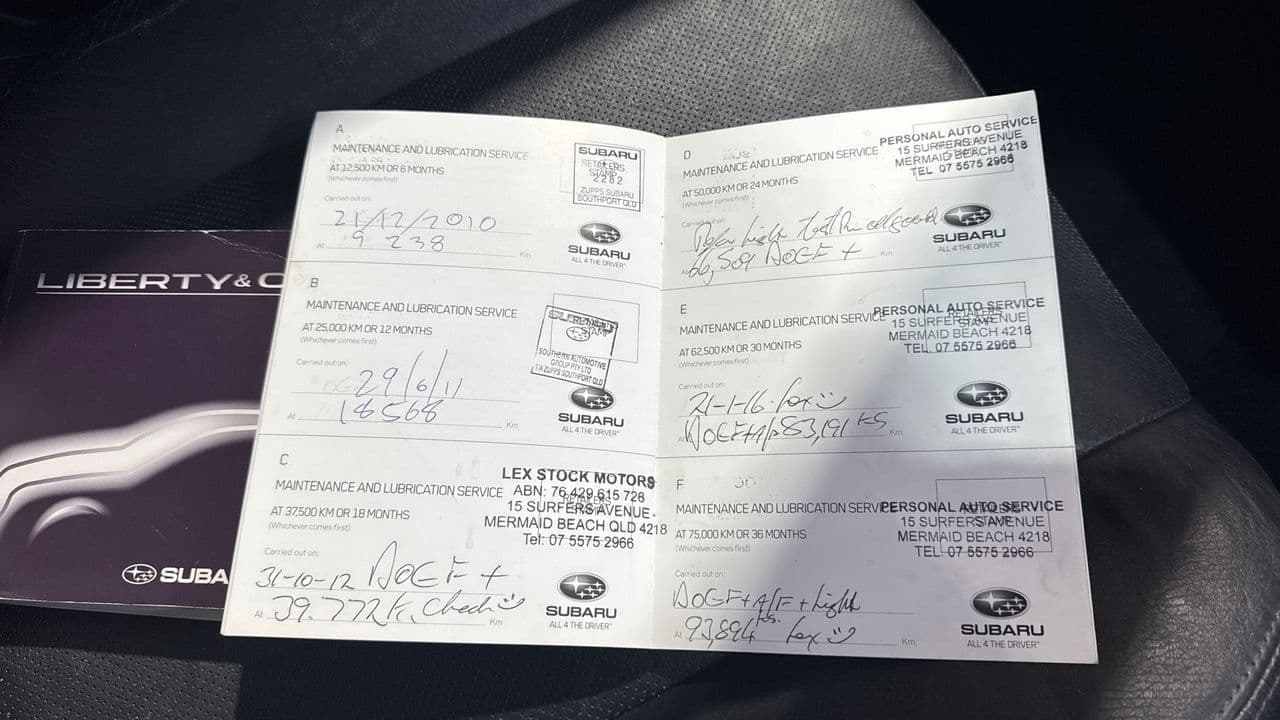 LIBERTY&O
SUBA
A
MAINTENANCE AND LUBRICATION SERVICE
AT 12,500 KM OR 6 MONTHS
(Whichever comes first)
Carried out on:
21/12/2010
At 9 238 Km
SUBARU
RETAILERS
STAMP
2282
ZUPPS SUBARU
SOUTHPORT QLD
SUBARU
ALL 4 THE DRIVER
B
MAINTENANCE AND LUBRICATION SERVICE
AT 25,000 KM OR 12 MONTHS
(Whichever comes first)
Carried out on:
29/6/11
At 18568 Km
STAMP
SOUTHERN AUTOMOTIVE
GROUP PTY LTD
T/A ZUPPS SOUTHPORT QLD
SUBARU
ALL 4 THE DRIVER
C
MAINTENANCE AND LUBRICATION SERVICE
AT 37,500 KM OR 18 MONTHS
(Whichever comes first)
Carried out on:
31-10-12 +
At 39.772 K. Check Km
LEX STOCK MOTORS
ABN: 76 429 615 726
15 SURFERS AVENUE
MERMAID BEACH QLD 4218
Tel: 07 5575 2966
SUBARU
ALL 4 THE DRIVER
D
MAINTENANCE AND LUBRICATION SERVICE
AT 50,000 KM OR 24 MONTHS
(Whichever comes first)
Carried out on:
At 66,509 + Km
PERSONAL AUTO SERVICE
15 SURFERS AVENUE
MERMAID BEACH 4218
TEL. 07 5575 2966
SUBARU
ALL 4 THE DRIVER
E
MAINTENANCE AND LUBRICATION SERVICE
AT 62,500 KM OR 30 MONTHS
(Whichever comes first)
Carried out on:
21-1-16
At 83,191 KS Km
PERSONAL AUTO SERVICE
15 SURFERS AVENUE
MERMAID BEACH 4218
TEL. 07 5575 2966
SUBARU
ALL 4 THE DRIVER
F
MAINTENANCE AND LUBRICATION SERVICE
AT 75,000 KM OR 36 MONTHS
(Whichever comes first)
Carried out on:
At 93,894 Km
PERSONAL AUTO SERVICE
15 SURFERS AVENUE
MERMAID BEACH 4218
TEL. 07 5575 2966
SUBARU
ALL 4 THE DRIVER